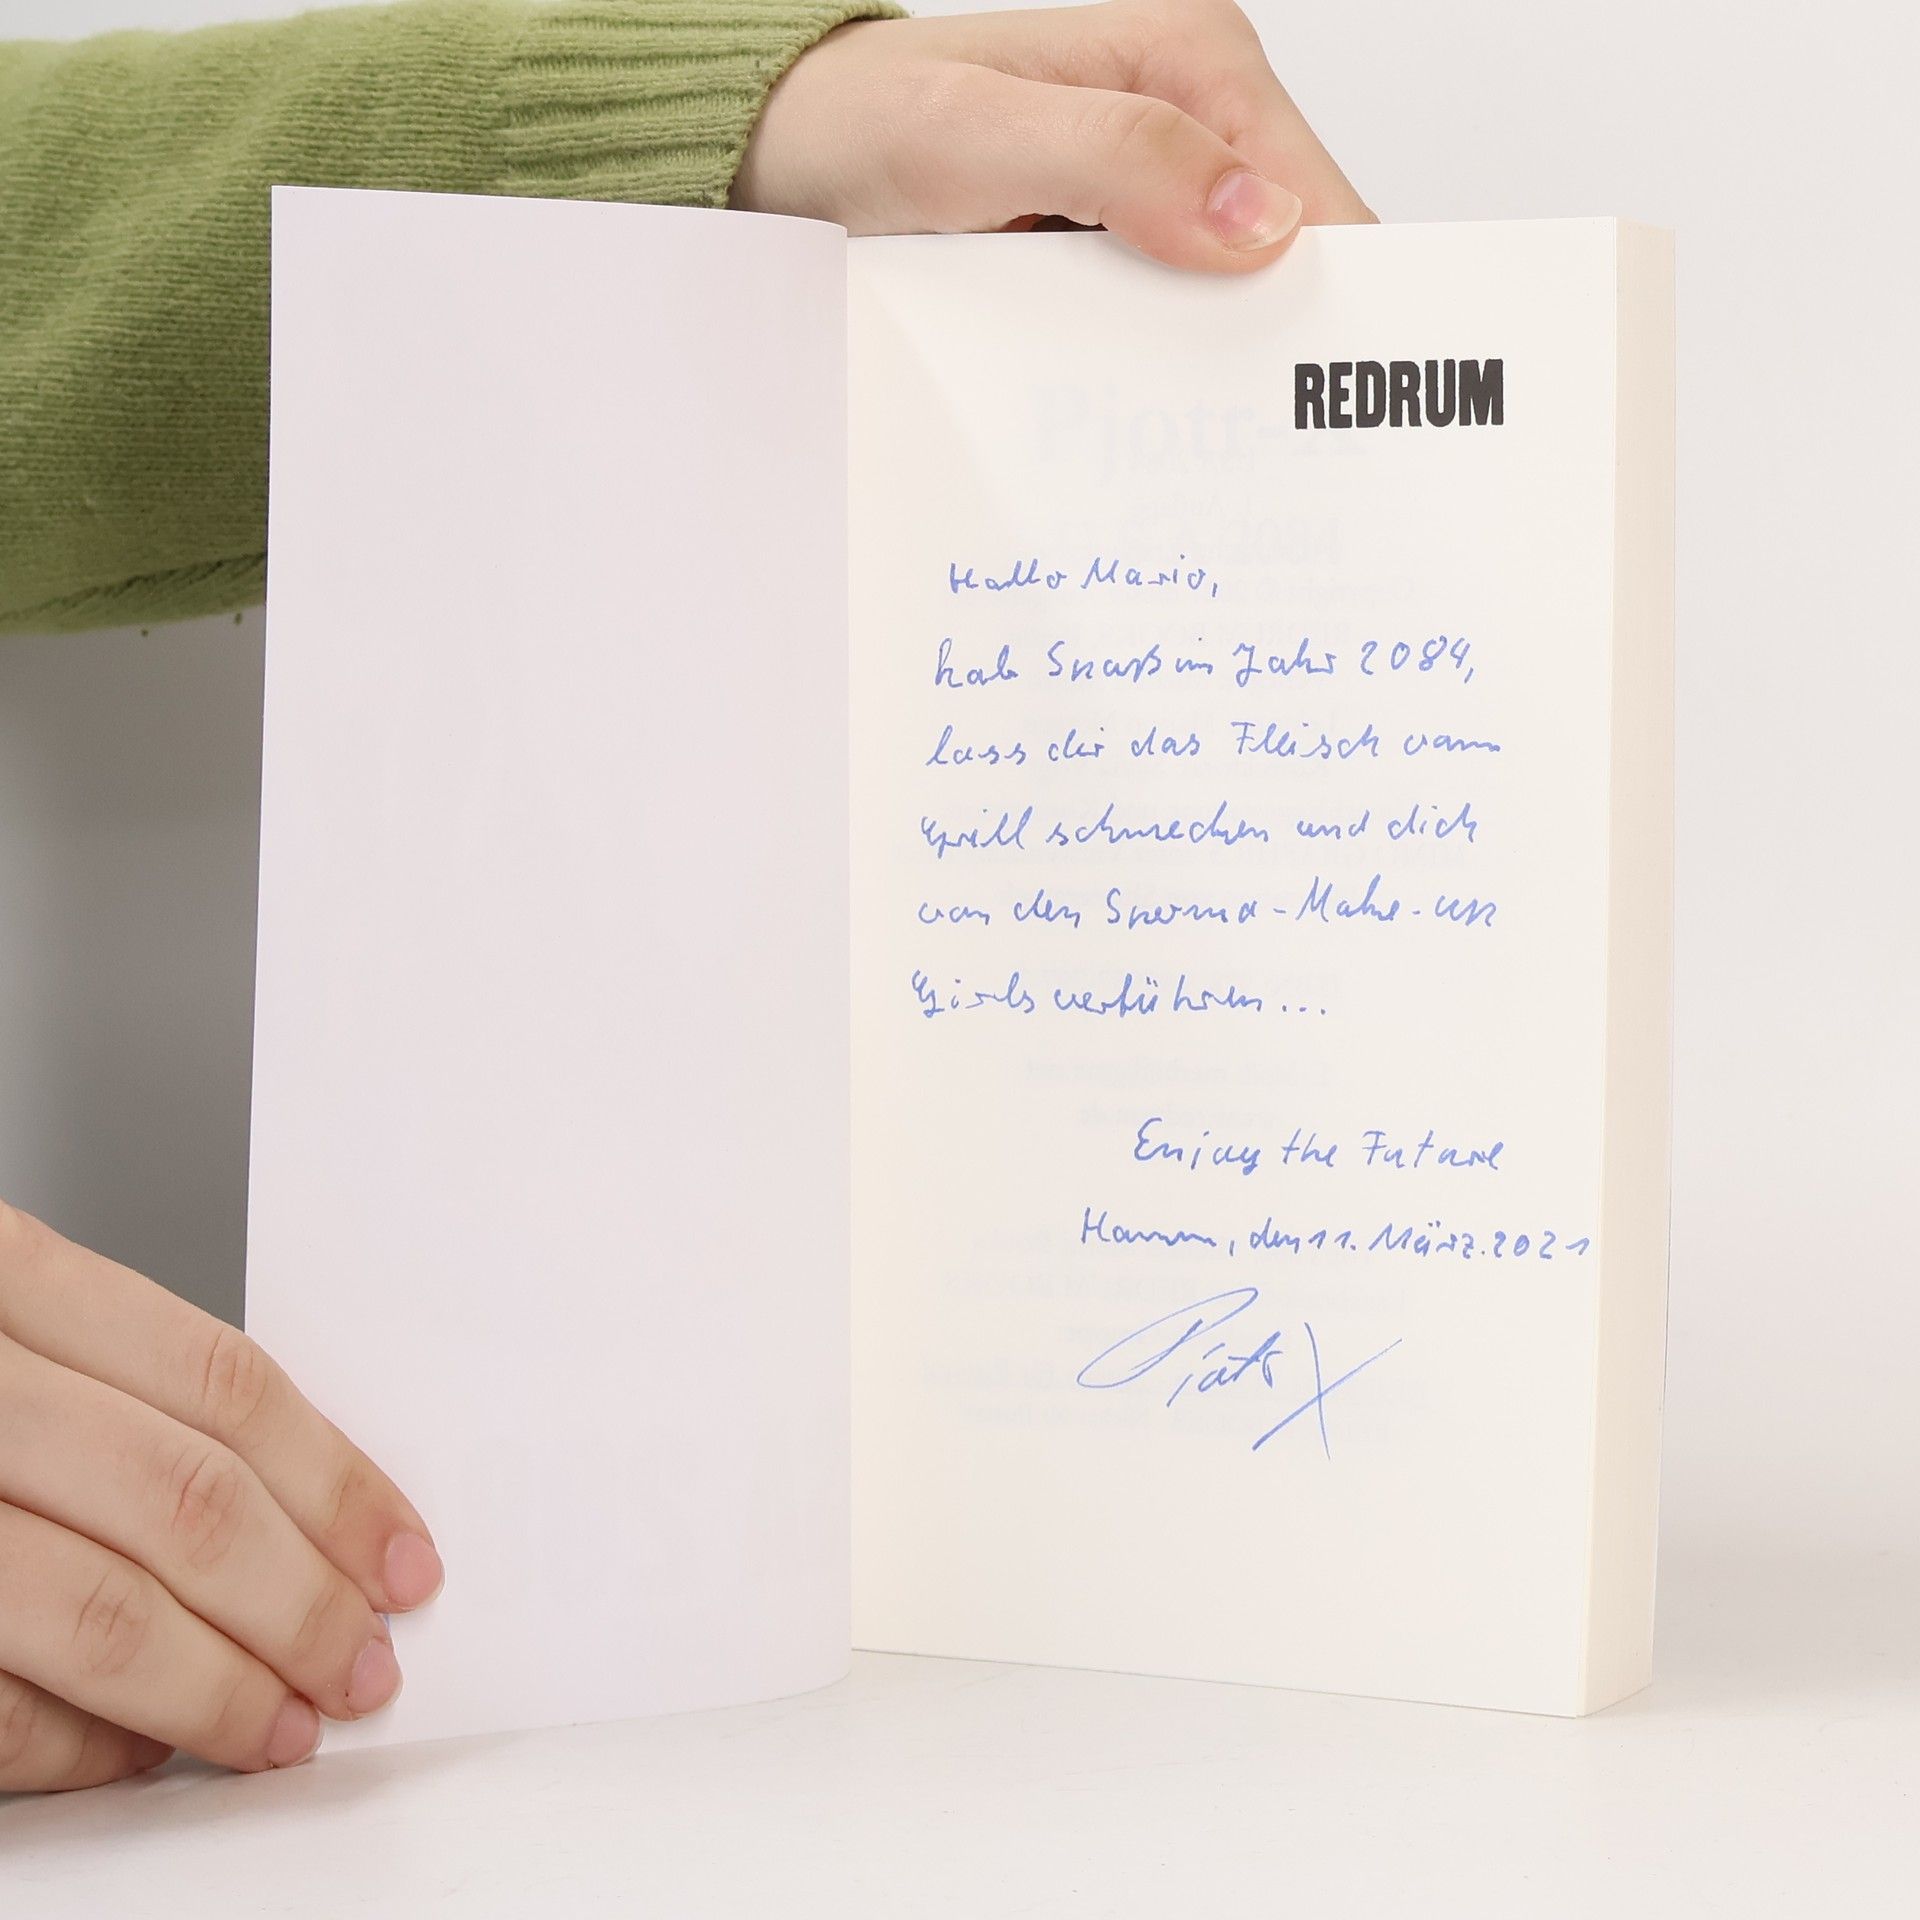 REDRUM
Hallo Mario,
hab Spaß im Jahr 2084,
lass dir das Fleisch vom
Grill schmecken und dich
von den Sperma-Make-up
Girls verführen...
Enjoy the Future
Hamm, den 11. März. 2021
Pjotr X